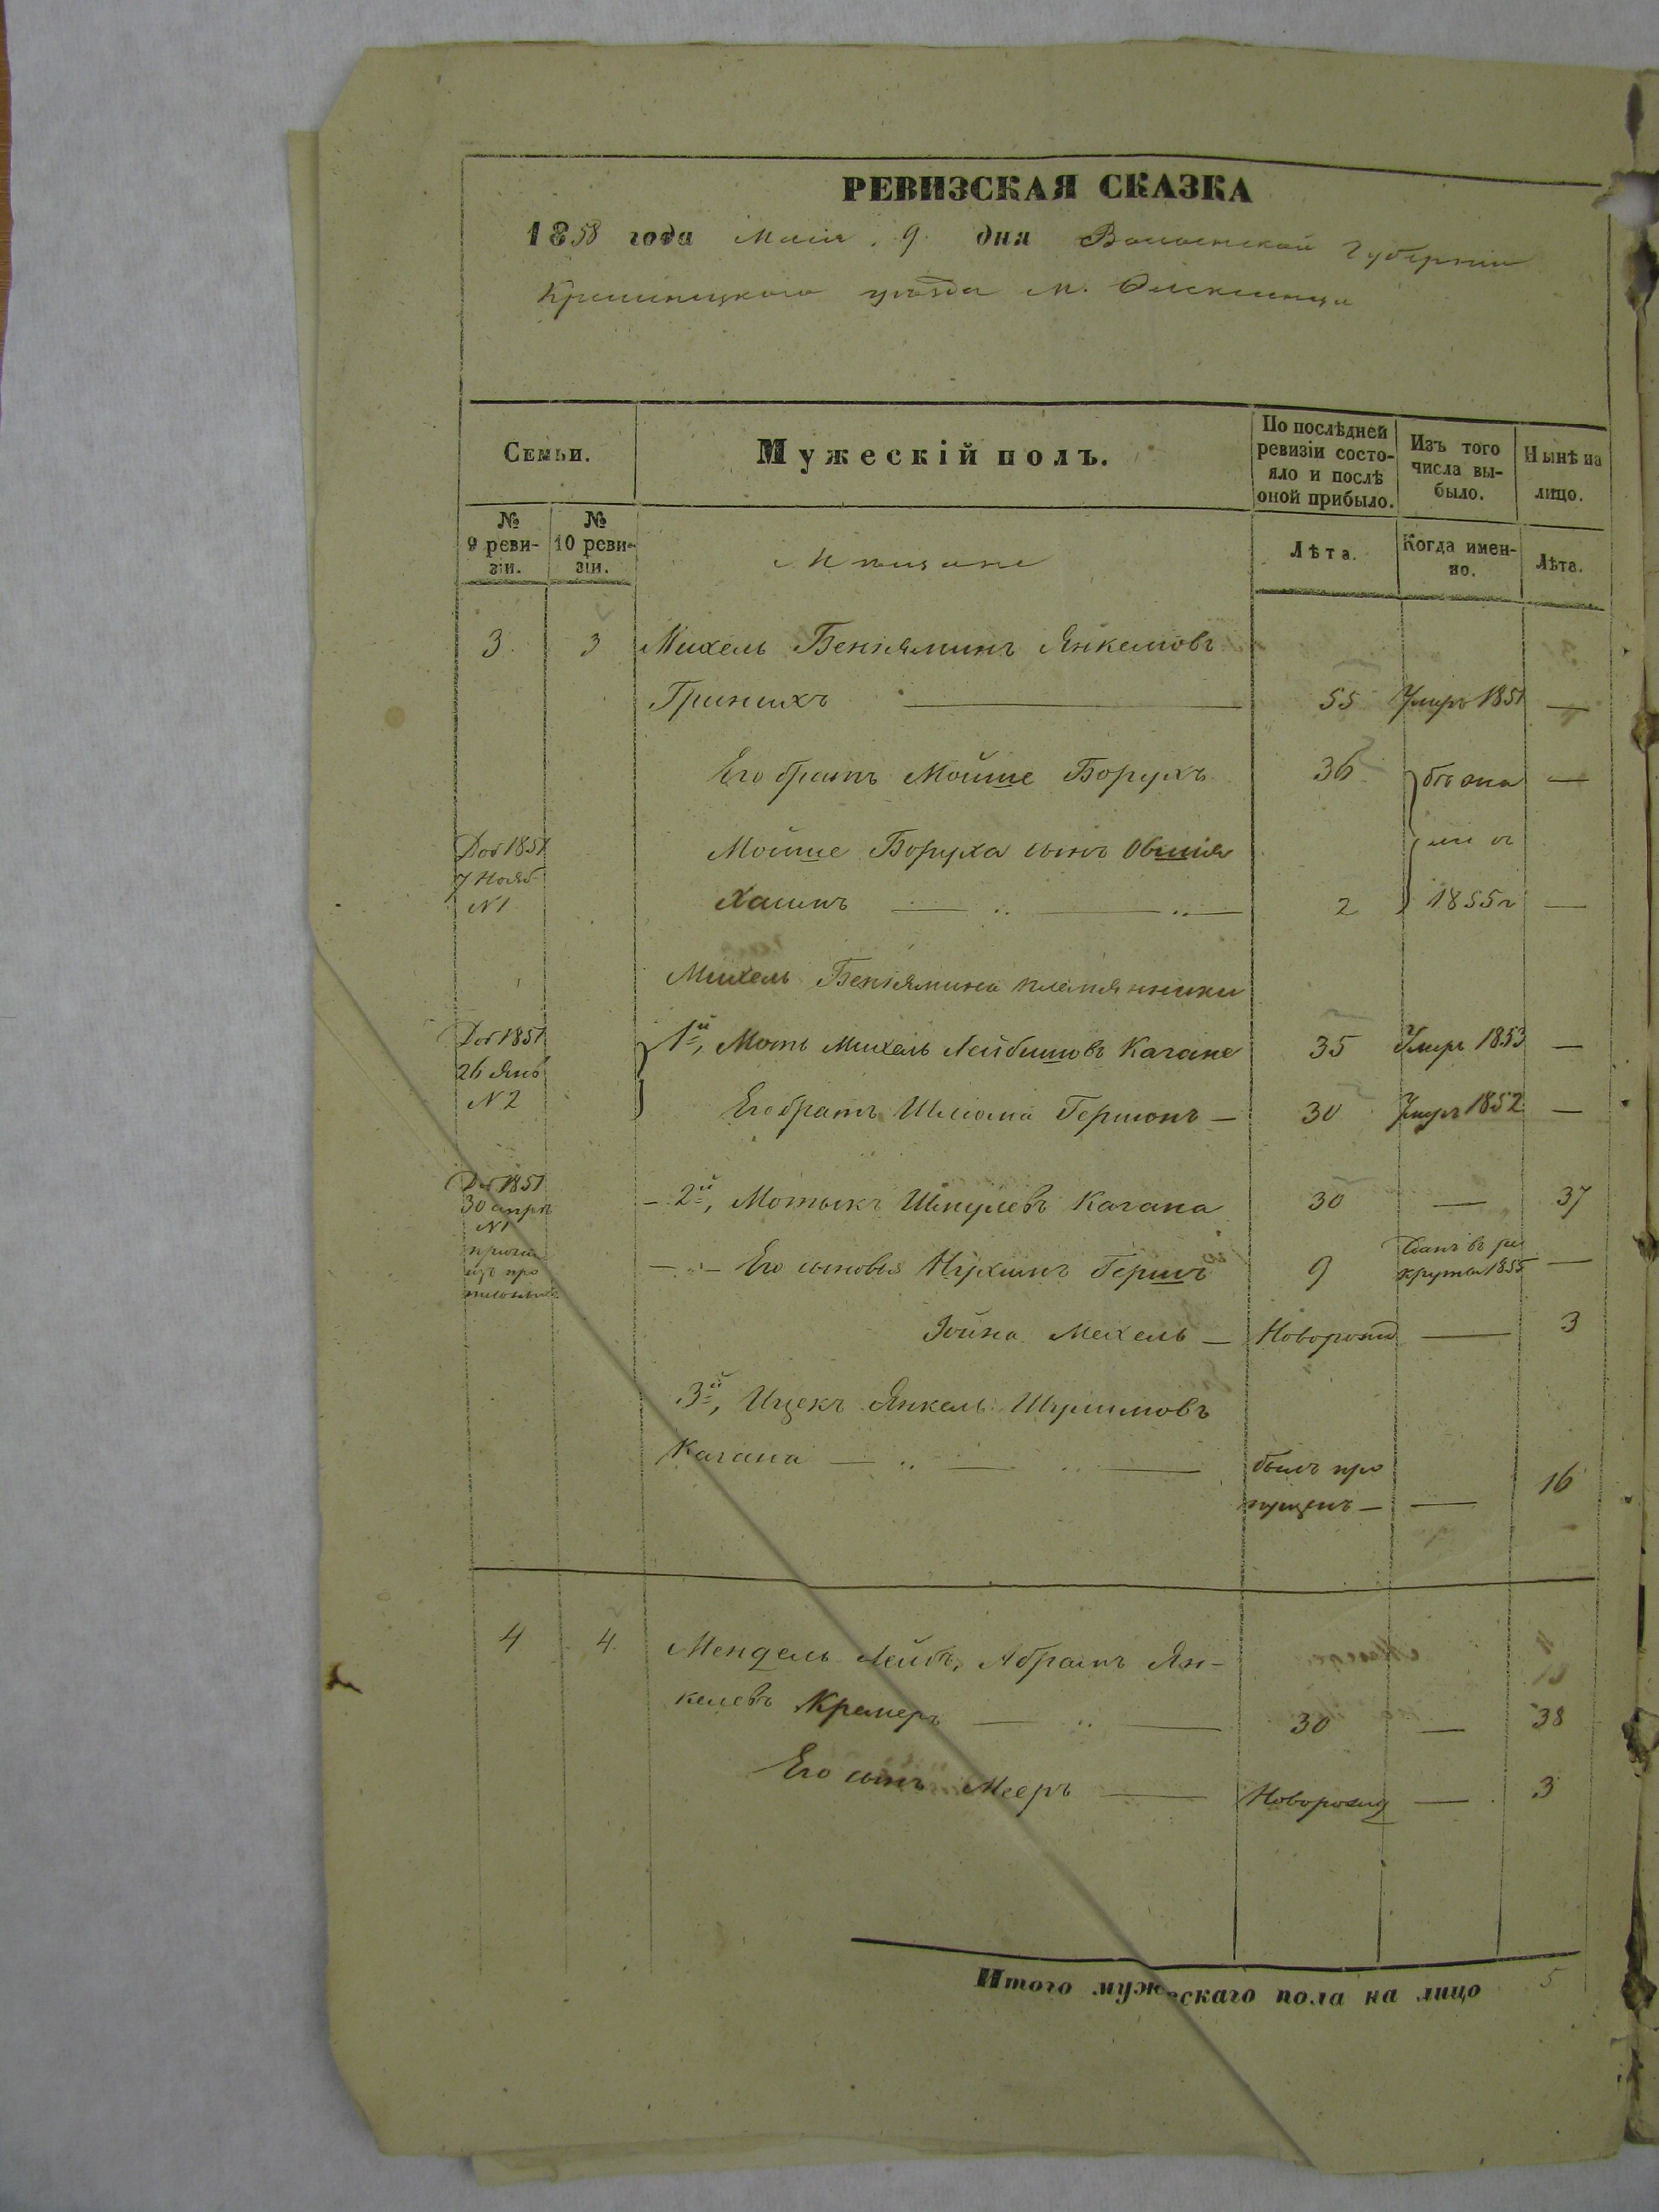 РЕВИЗСКАЯ СКАЗКА
1858 года Маія 9 дня Волынской Губерніи
Кременецкого уѣзда М. Олексинца
Семьи.
Мужескій полъ.
По послѣдней ревизіи состояло и послѣ оной прибыло.
Изъ того числа выбыло.
Нынѣ на лицо.
№ 9 ревизіи.
№ 10 ревизіи.
Мѣщане
Лѣта.
Когда именно.
Лѣта.
3 3 Михель Беніяминъ Янкелювъ
Гринихъ — 55 Умеръ 1851 —
Его братъ Мойше Борухъ 36 —
Мойше Боруха сынъ Овшія
Хаимъ — 2 1855 г —
Доб 1851
7 Нояб
N 1
Михель Беніямина племянники
1й, Моть Михель Лейбишовъ Кагане 35 Умеръ 1853 —
Доб 1851
26 Янв
N 2
Его братъ Шлиома Гершонъ — 30 Умеръ 1852 —
Доб 1851
30 апрѣ
N 1
— 2й, Мотыкъ Шмулевъ Кагана 30 — 37
— Его сыновья Нухимъ Гершъ 9 Сданъ въ рекруты 1855 —
Іойна Мехель — Новорожд — 3
3й, Ицекъ Янкель Шулимовъ
Кагана — былъ пропущенъ — — 16
4 4 Мендель Лейбъ, Абрамъ Ян-
келевъ Кремеръ — 30 — 38
Его сынъ Мееръ — Новорожд — 3
Итого мужескаго пола на лицо 5